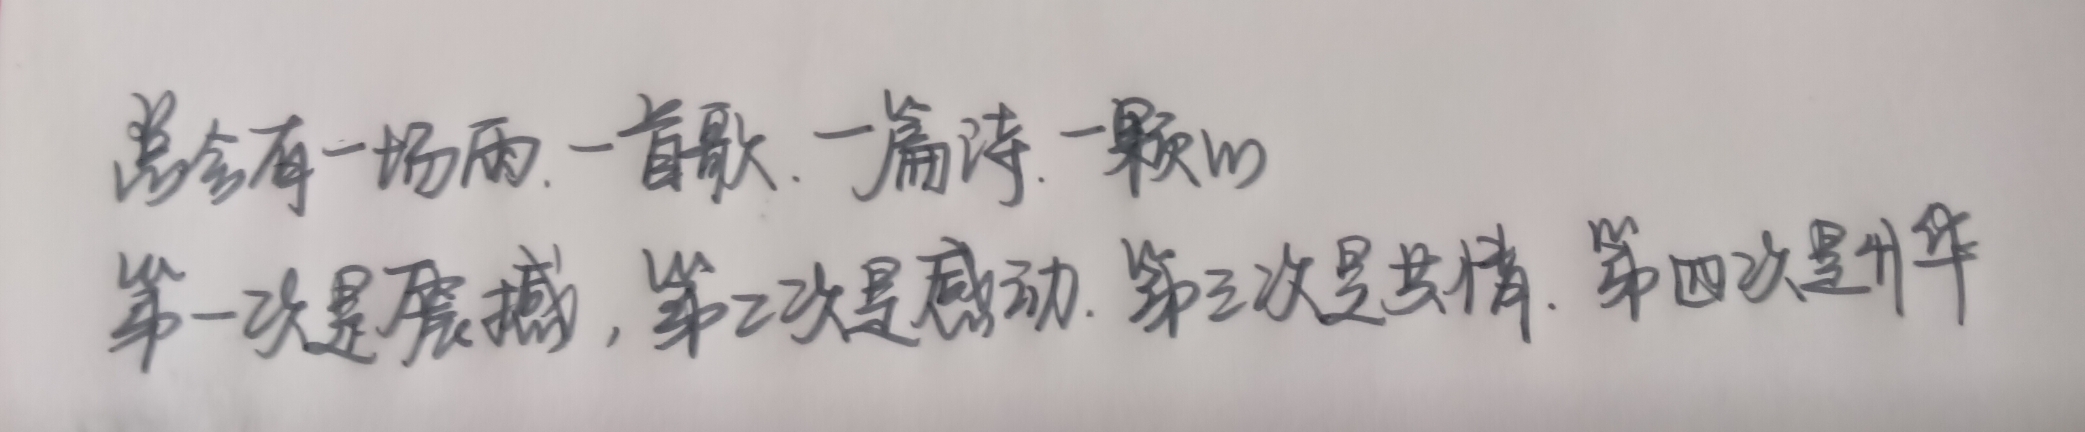 总会有一场雨.一首歌.一篇诗.一颗心
第一次是震撼,第二次是感动.第三次是共情.第四次是升华